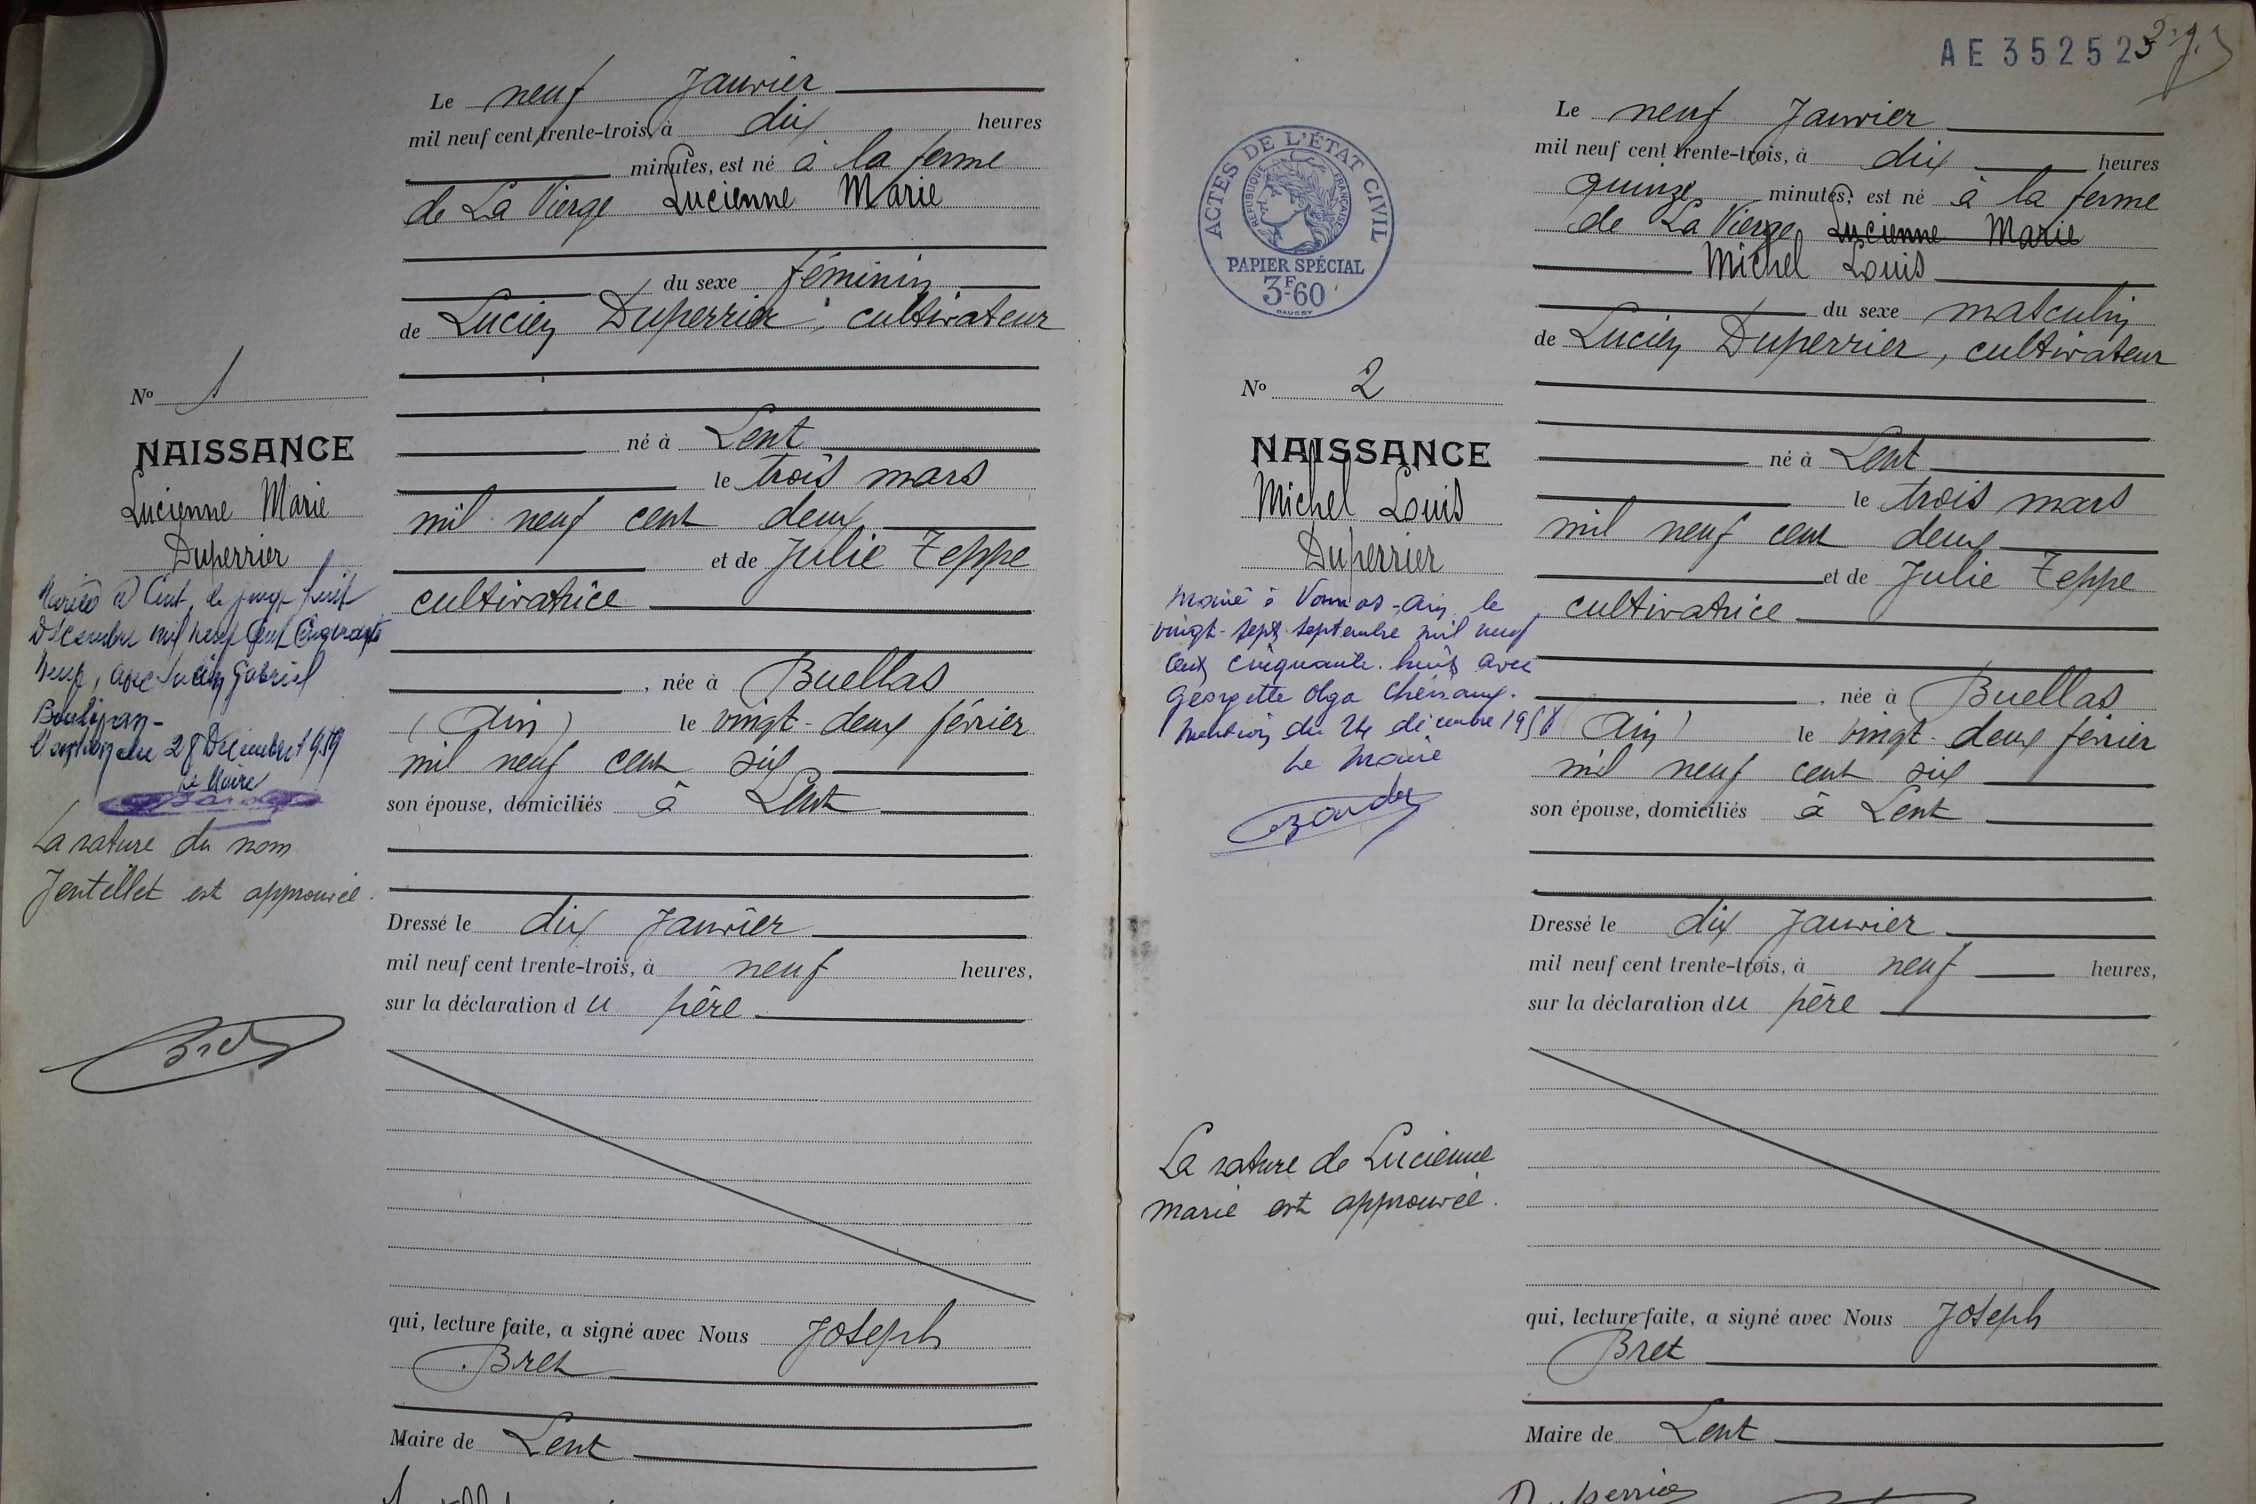 Le neuf Janvier
mil neuf cent trente-trois, à dix heures
minutes, est né à la ferme
de La Vierge Lucienne Marie
du sexe féminin
de Lucien Duperrier, cultivateur
né à Lent
le trois mars
mil neuf cent deux
et de Julie Teppe
cultivatrice
, née à Buellas
(Ain) le vingt-deux février
mil neuf cent six
son épouse, domiciliés à Lent
Dressé le dix Janvier
mil neuf cent trente-trois, à neuf heures,
sur la déclaration du père
qui, lecture faite, a signé avec Nous Joseph
Bret
Maire de Lent
No 1
NAISSANCE
Lucienne Marie
Duperrier
Mariée à Lent, le vingt huit
Décembre mil neuf cent cinquante
neuf, avec Lucien Gabriel
28 Décembre 1959
Le Maire
La rature du nom
Jentellet est approuvée.
Bret
AE 35252
Le neuf Janvier
mil neuf cent trente-trois, à dix heures
quinze minutes, est né à la ferme
de La Vierge Lucienne Marie
Michel Louis
du sexe masculin
de Lucien Duperrier, cultivateur
né à Lent
le trois mars
mil neuf cent deux
et de Julie Teppe
cultivatrice
, née à Buellas
(Ain) le vingt-deux février
mil neuf cent six
son épouse, domiciliés à Lent
Dressé le dix Janvier
mil neuf cent trente-trois, à neuf heures,
sur la déclaration du père
qui, lecture faite, a signé avec Nous Joseph
Bret
Maire de Lent
Duperrier
ACTES DE L'ÉTAT CIVIL
RÉPUBLIQUE FRANÇAISE
PAPIER SPÉCIAL
3F60
No 2
NAISSANCE
Michel Louis
Duperrier
Marié à Vonnas-Ain, le
vingt-sept septembre mil neuf
cent cinquante-huit avec
Georgette Olga
Mention du 24 décembre 1958
Le Maire
La rature de Lucienne
Marie est approuvée.